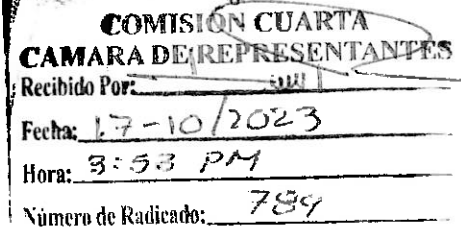 COMISIÓN CUARTA
CAMARA DE REPRESENTANTES
Recibido Por:
Fecha: 17-10/2023
Hora: 3:53 PM
Número de Radicado: 789